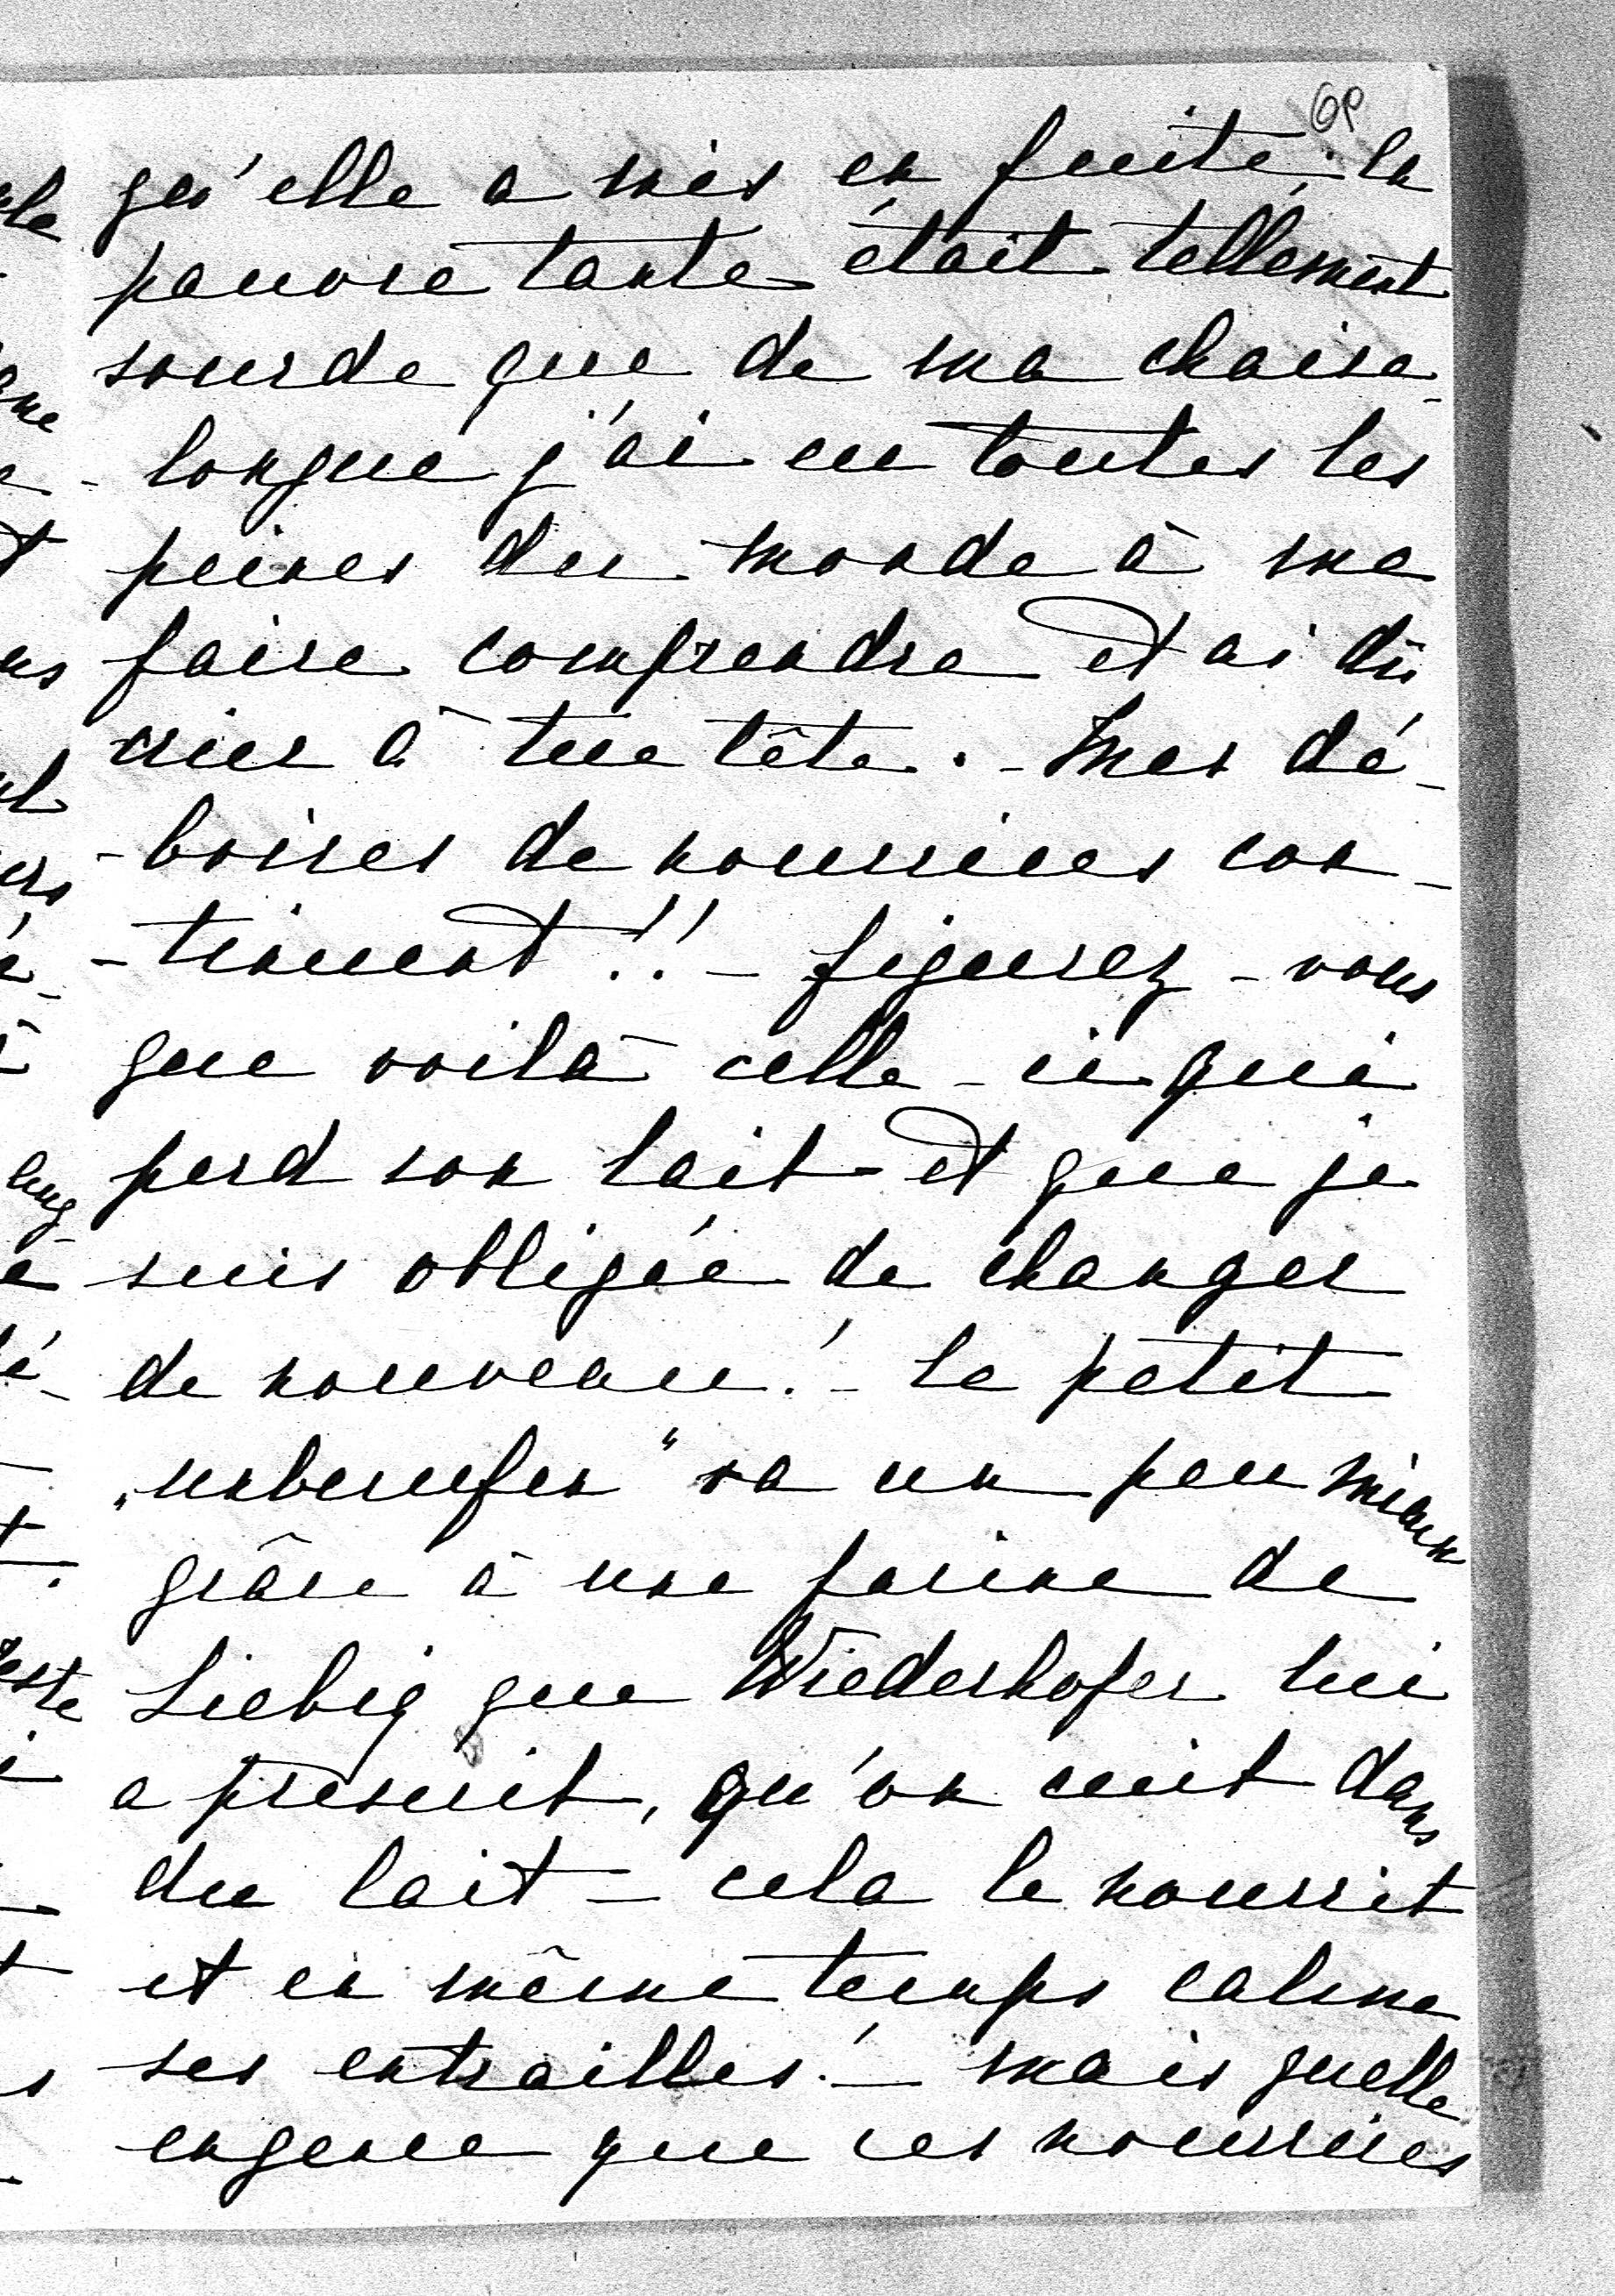 qu'elle a mis en fuite; la
pauvre tante était tellement
sourde que de ma chaise-
-longue j'ai eu toutes les
peines du monde à me
faire comprendre et ai dû
crier à tue tête. - Mes dé-
-boires de nourrices con-
-tinuent!! - figurez-vous
que voilà celle-ci qui
perd son lait - et que je
suis obligée de changer
de nouveau! - le petit
„unberufen“ va un peu mieux
grâce à une farine de
Liebig que Wiederhofer lui
a prescrit, qu'on cuit dans
du lait - cela le nourrit
et en même temps calme
ses entrailles! - mais quelle
engence que ces nourrices